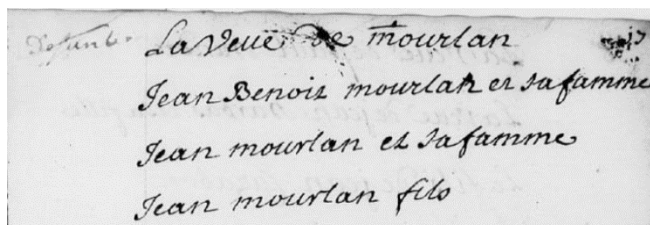 La Veue de mourlan
Jean Benoit mourlan et sa famme
Jean mourlan et sa famme
Jean mourlan fils